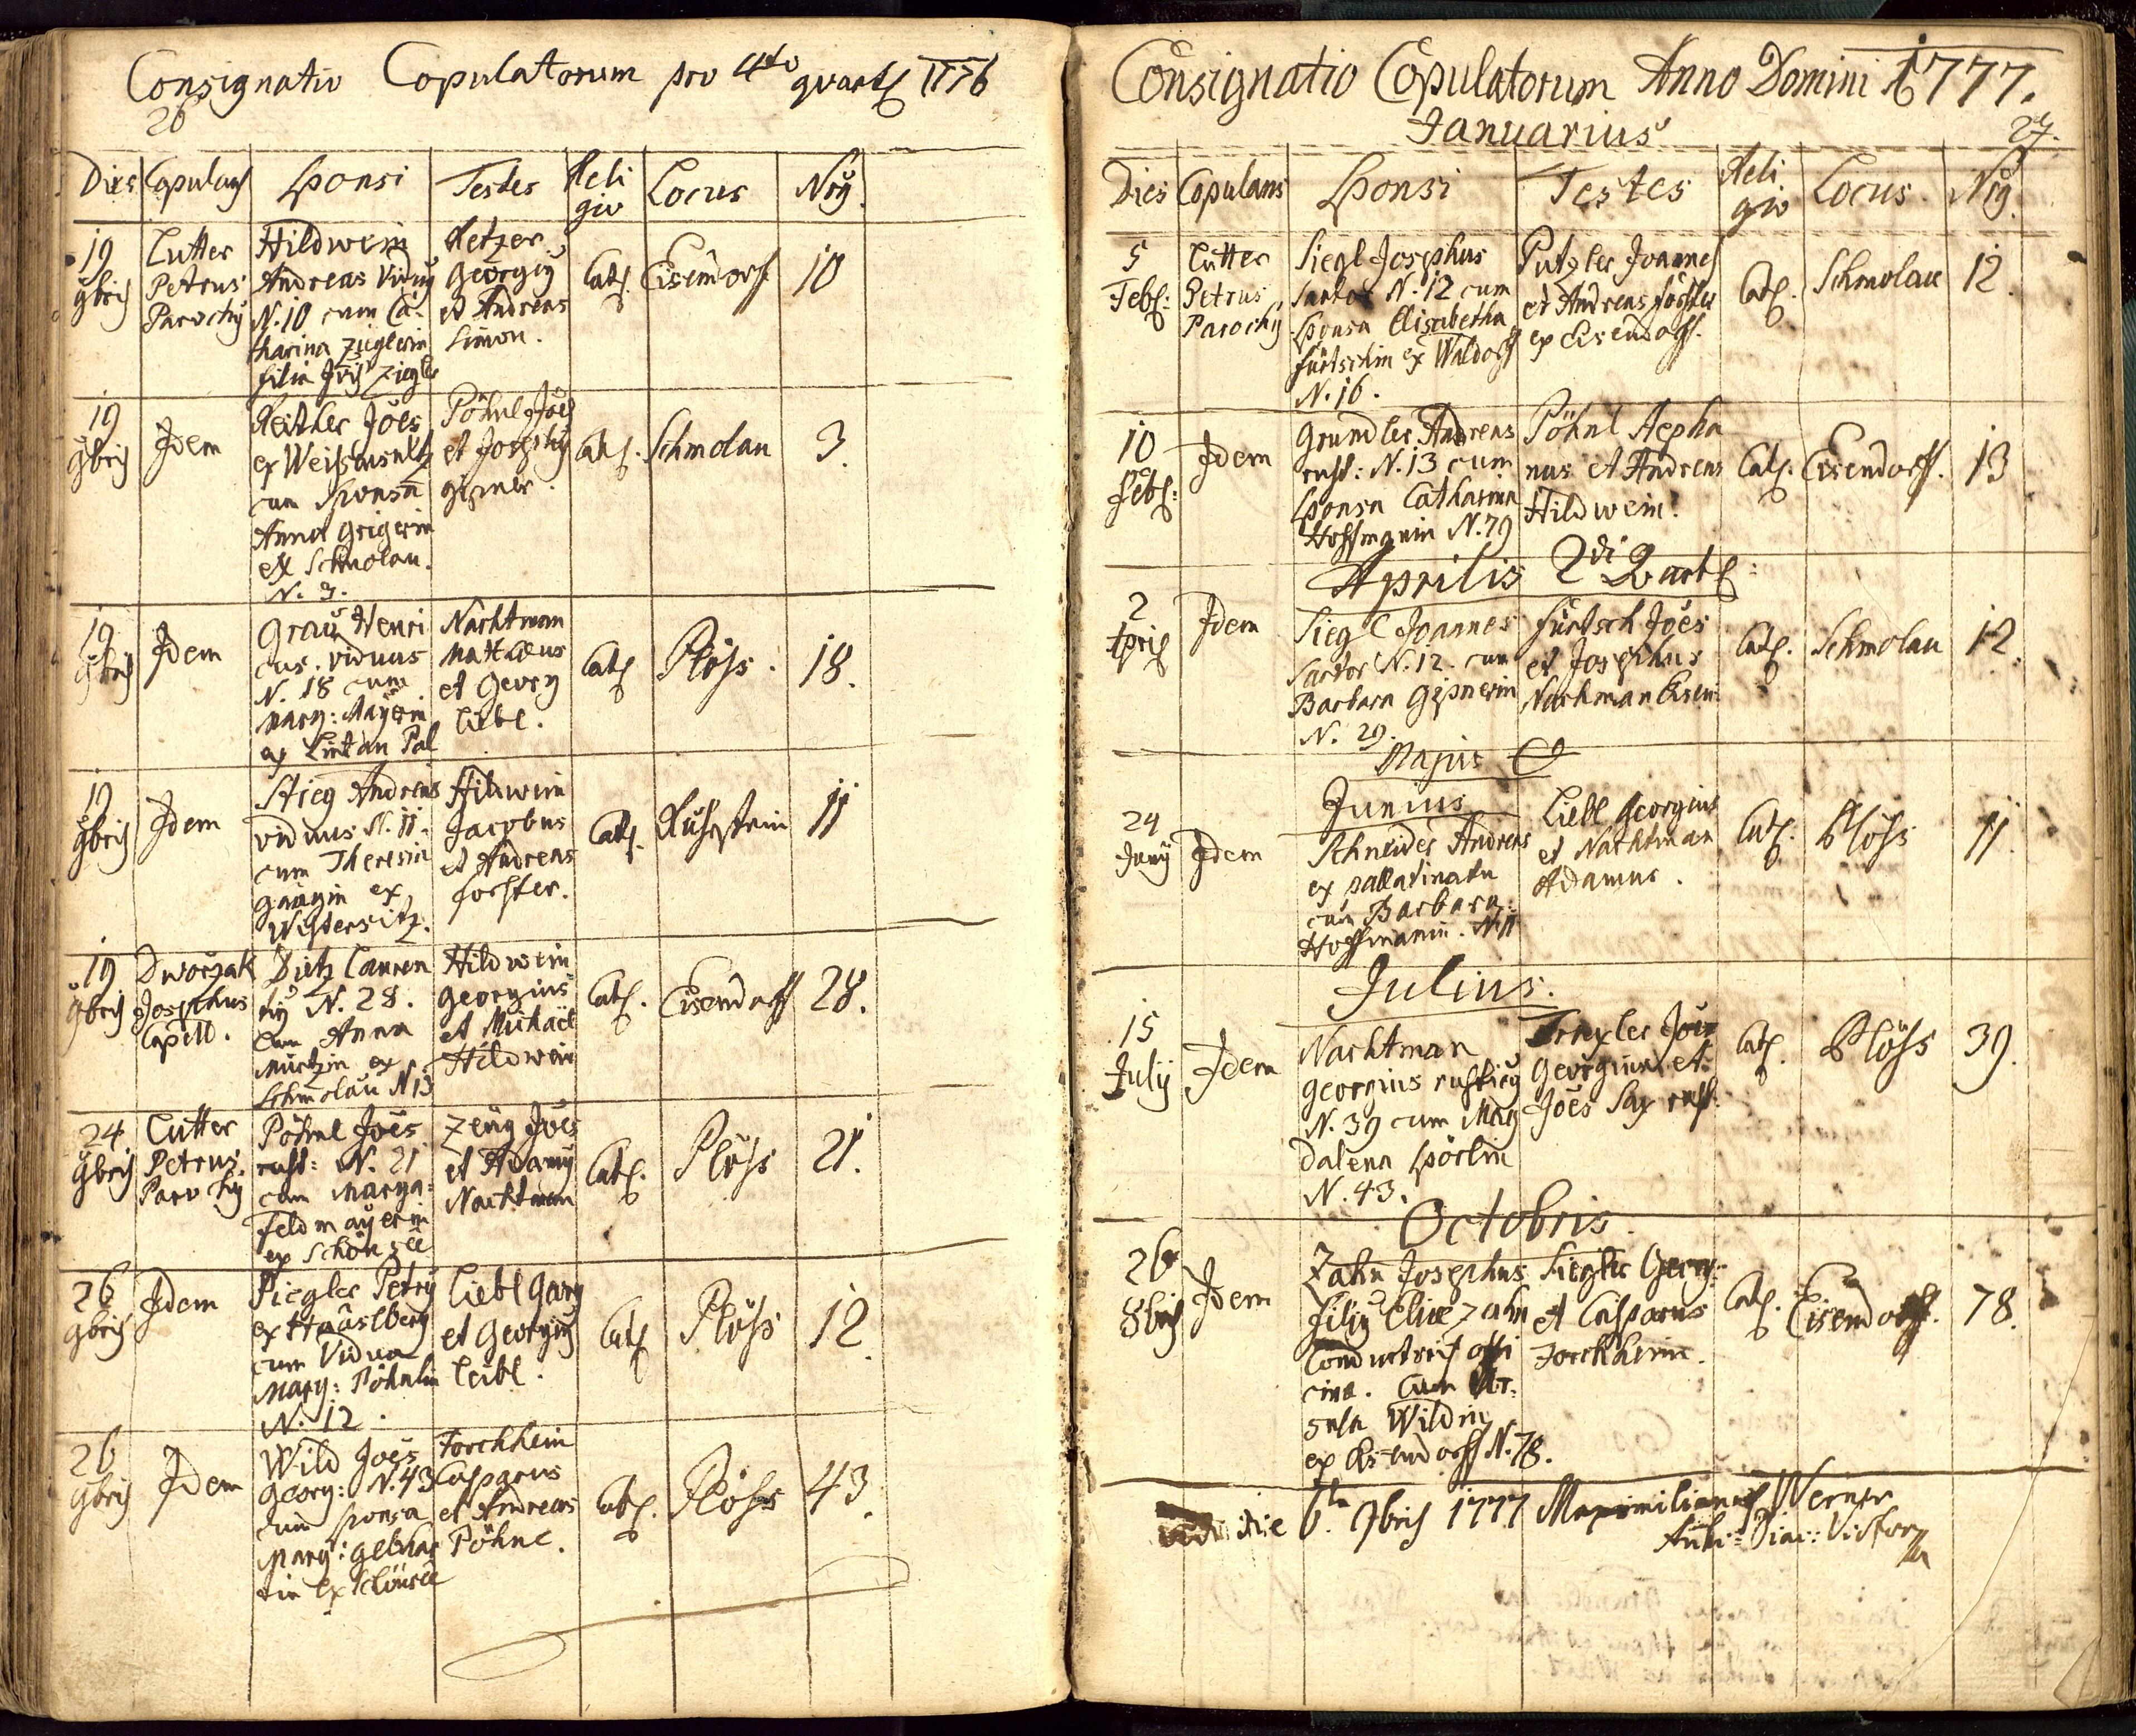 Consignatio Copulatorum pro 4to quart 1776
26
Dies Copulans Sponsi Testes Religio Locus Nrus
19 9bris
Lutter
Petrus
Parochus
Hildwein
Andreas Viduus
N. 10 cum Ca
tharina Zieglerin
filia Zieglr
Ketzer
Georgius
et Andreas
Simon.
Cath. Eisendorf 10
19 9bris
Idem
Joes
ex
cum Sponsa
Anna Grigerin
ex Schmolau.
N. 3.
Pöhnl Joes
et Josephus
Cath. Schmolau 3.
19 9bris
Idem
Grau Henri
cus. viduus
N. 18 cum
Marg: Mayerin
ex Pal
Nachtman
Mathæus
et Georg
Liebl.
Cath Plöss. 18.
19 9bris
Idem
Stieg Andreas
viduus N. 11.
cum Theresia
ex
Hildwein
Jacobus
et Andreas
forster.
Cath. 11
19 9bris
Dworzak
Josephus
Capell.
Dietz Lauren
tius N. 28.
cum Anna
ex
Schmolau N 13
Hildwein
Georgius
et Michael
Hildwein
Cath. Eisendorff 28.
24 9bris
Lutter
Petrus.
Parochus
Pöhnl Joes
rust: N. 21
cum Marga:
Feldmayerin
ex Schönsee
Zeug Joes
et Adamus
Nachtman
Cath. Plöss 21.
26 9bris
Idem
Piegler Petrus
ex
cum Vidua
Marg: Pöhnlin
N. 12.
Liebl Georg
et Georgius
Leibl.
Cath Plöss 12.
26 9bris
Idem
Wild Joes
Georg: N. 43
cum sponsa
Marg:
ex Schönsee
Forchheim
Casparus
et Andreas
Pöhnl.
Cath. Plöss 43.
Consignatio Copulatorum Anno Domini 1777.
Januarius
27.
Dies Copulans Sponsi Testes Religio Locus Nrus
5 Feb:
Lutter
Petrus
Parochus
Siegl Josephus
Sartor N. 12 cum
Sponsa Elisabetha
fürtschin ex Waldorff
N. 16.
Putzler Joannes
et Andreas forster
ex Eisendorff.
Cath. Schmolau 12.
10 feb:
Idem
Grundler Andreas
rust: N. 13 cum
Sponsa Catharina
Hoffmanin N. 79
Pöhnl Stepha
nus et Andreas
Hildwein.
Cath. Eisendorff. 13
Aprilis 2di Quart:
2 Apris
Idem
Siegl Joannes
Sartor N. 12. cum
Barbara Gipnerin
N. 29.
fürtsch Joes
et Josephus
Nachman
Cath. Schmolau 12.
Majus et
Junius
24 Junij
Idem
Schneider Andreas
ex pallatinatu
cum Barbara
Hoffmanin. N 11
Liebl Georgius
et Nachtman
Adamus.
Cath. Plöss 11.
Julius.
15 Julij
Idem
Nachtman
Georgius rusticus
N. 39 cum Mag
dalena Spörlin
N. 43.
Traxler Joes
Georgius et
Joes Sax rust.
Cath. Plöss 39.
Octobris
26 8bris
Idem
Zahn Josephus
filius Eliæ Zahn
Conductoris offi
cinæ. Cum Ur
sula Wildin
ex Eisendorff N. 78.
Siegler Georg:
et Casparus
Forchheim.
Cath. Eisendorff. 78.
die 6ta 9bris 1777 Maximilianus Werner